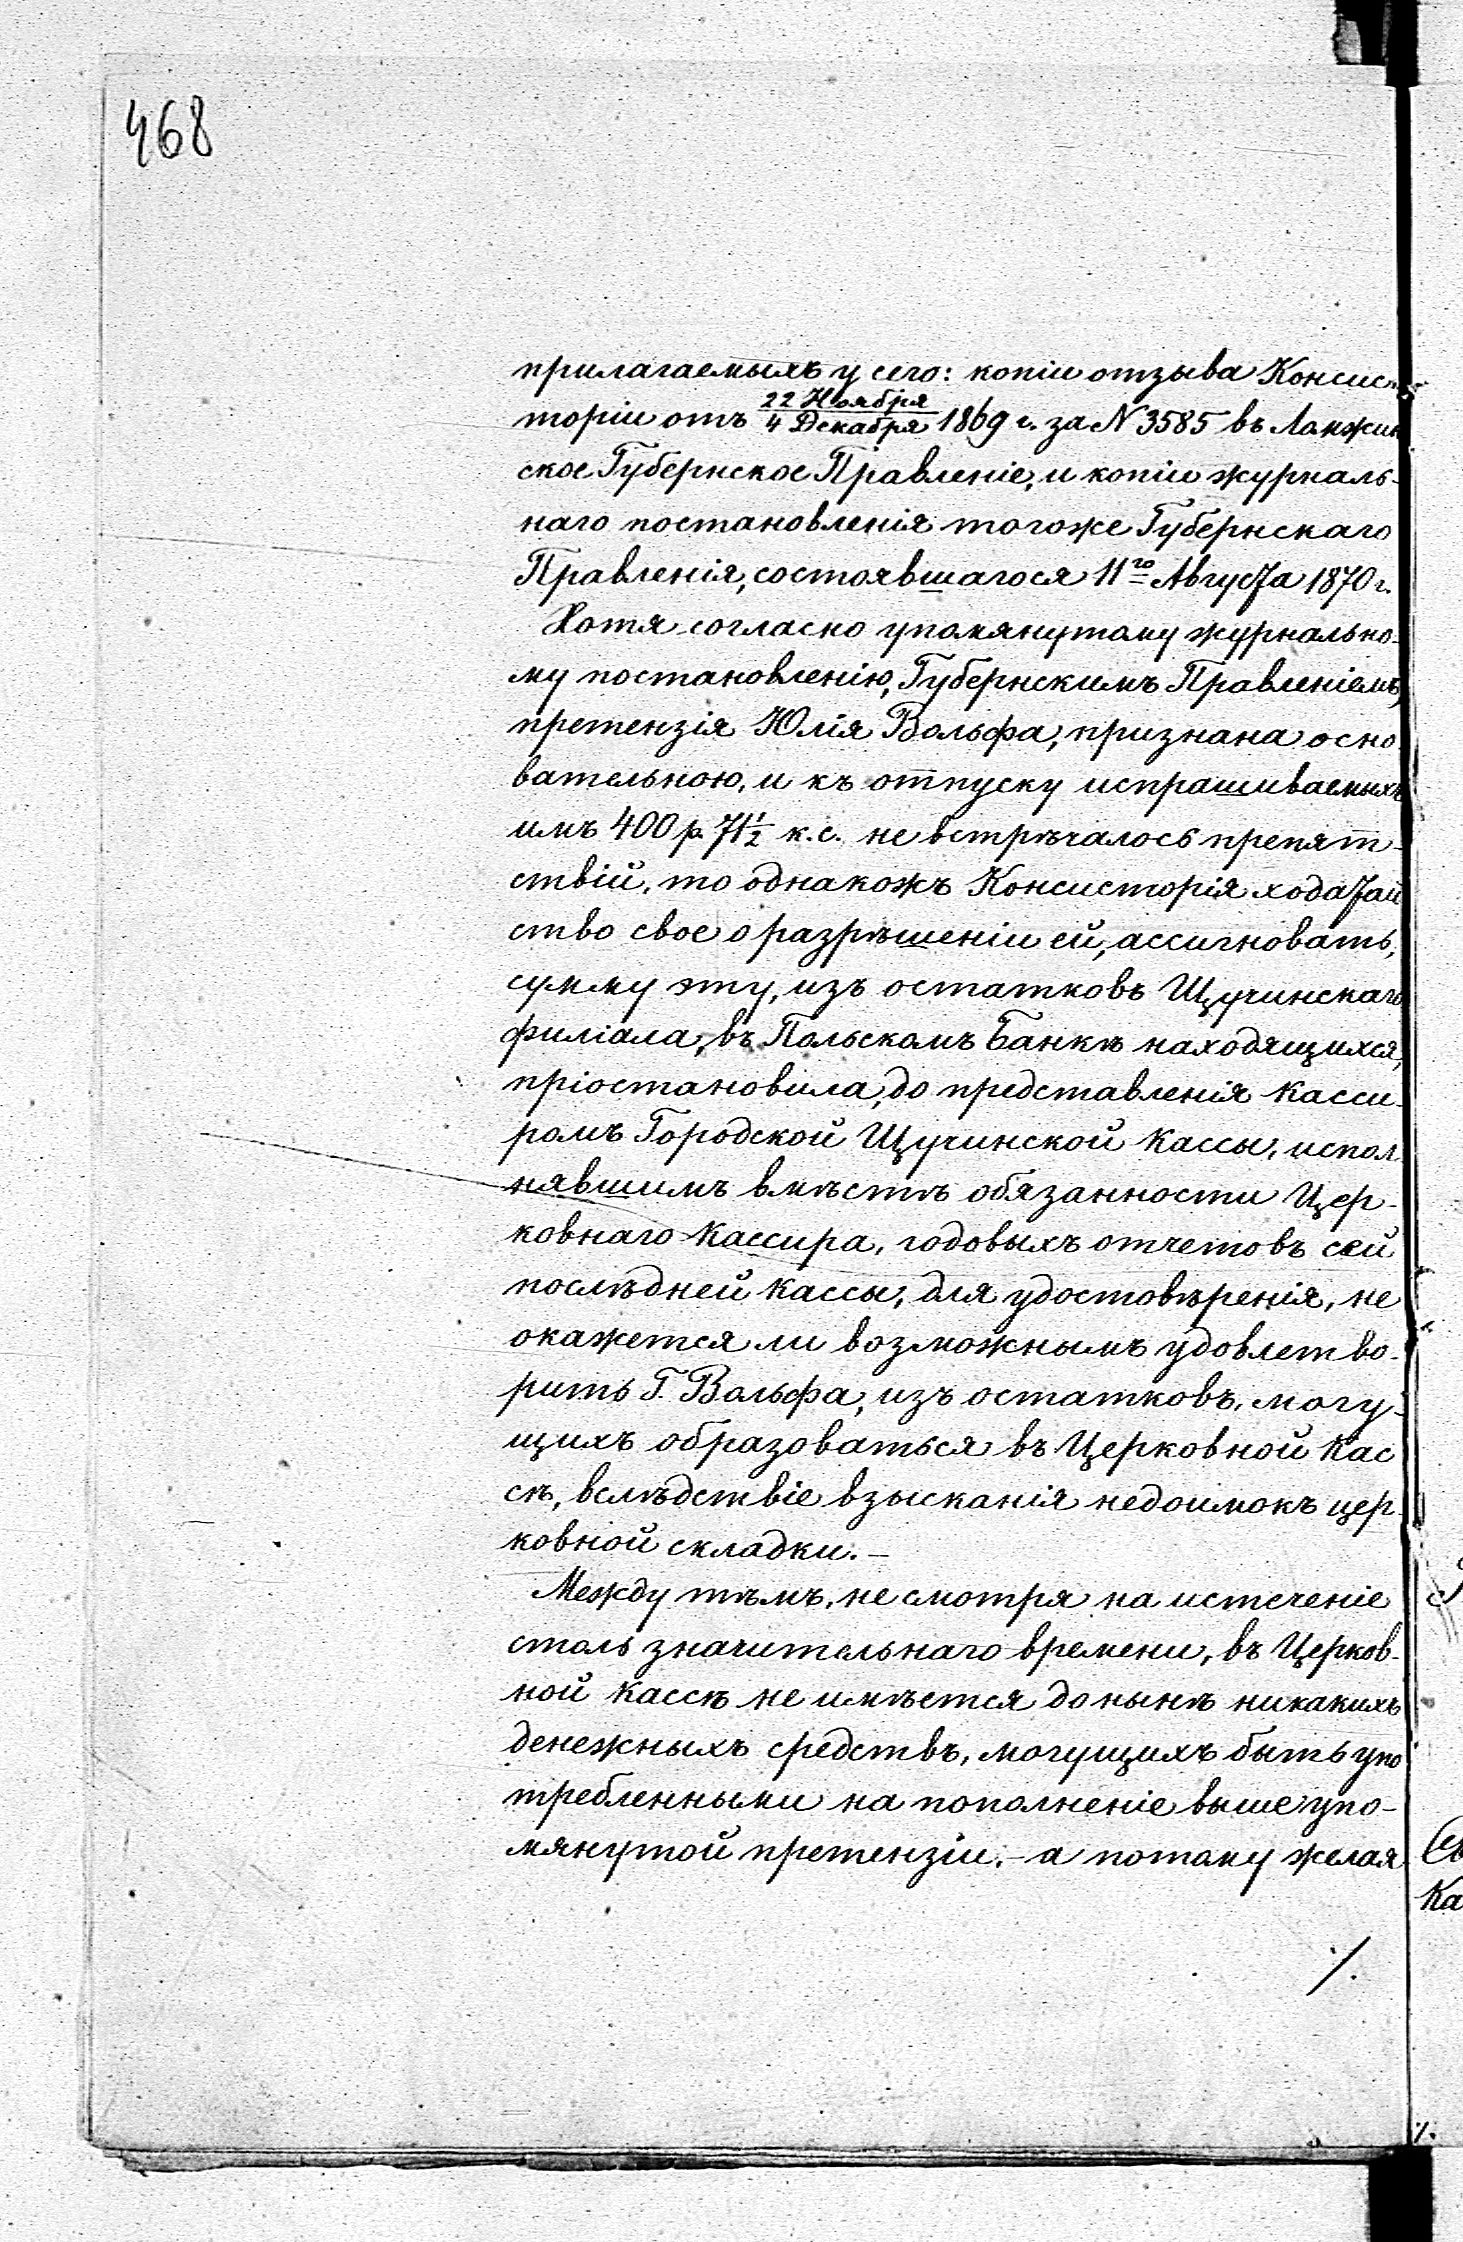 468
прилагаемыхъ у сего: копіи отзыва Консис-
торіи отъ 22 Ноября/4 Декабря 1869 г. за N 3585 въ Ломжин
ское Губернское Правленіе, и копіи журналь-
наго постановленія тогоже Губернскаго
Правленія, состоявшагося 11го Августа 1870 г.
Хотя согласно упомянутому журнально-
му постановленію, Губернскимъ Правленіемъ,
претензія Юлія Вольфа, признана осно
вательною, и къ отпуску испрашиваемыхъ
имъ 400 р. 71 1/2 к. с. не встрѣчалось препят-
ствій, то однакожъ Консисторія ходатай
ство свое о разрѣшеніи ей, ассигновать,
сумму эту, изъ остатковъ Щучинскаго
филіала, въ Польскомъ Банкѣ находящихся,
пріостановила, до представленія Касси-
ромъ Городской Щучинской Кассы, испол
нявшимъ вмѣстѣ обязанности Цер-
ковнаго Кассира, годовыхъ отчетовъ сей
послѣдней кассы, для удостовѣренія, не
окажется ли возможнымъ удовлетво-
рить Г. Вольфа, изъ остатковъ, могу-
щихъ образоваться въ Церковной Кас
сѣ, вслѣдствіе взысканія недоимокъ цер-
ковной складки. —
Между тѣмъ, не смотря на истеченіе
столь значительнаго времени, въ Церков-
ной Кассѣ не имѣется донынѣ никакихъ
денежныхъ средствъ, могущихъ быть упо
требленными на пополненіе выше упо-
мянутой претензіи. — а потому желая
./.
Ка